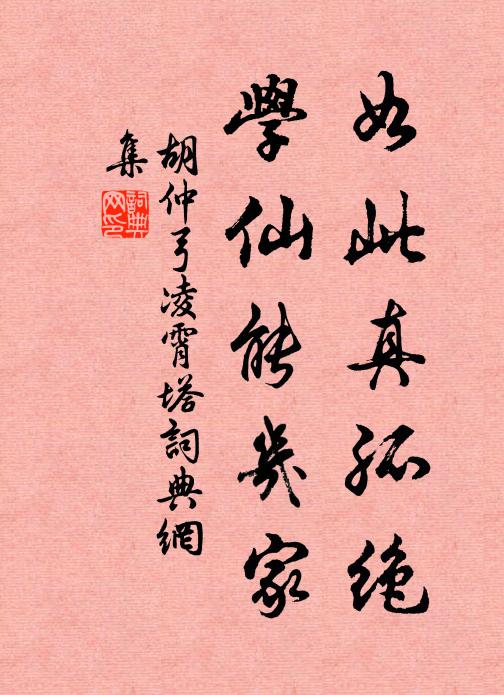 如此真孤絶
學仙能幾家
胡仲弓凌霄塔詞典網
集
詞典
网印